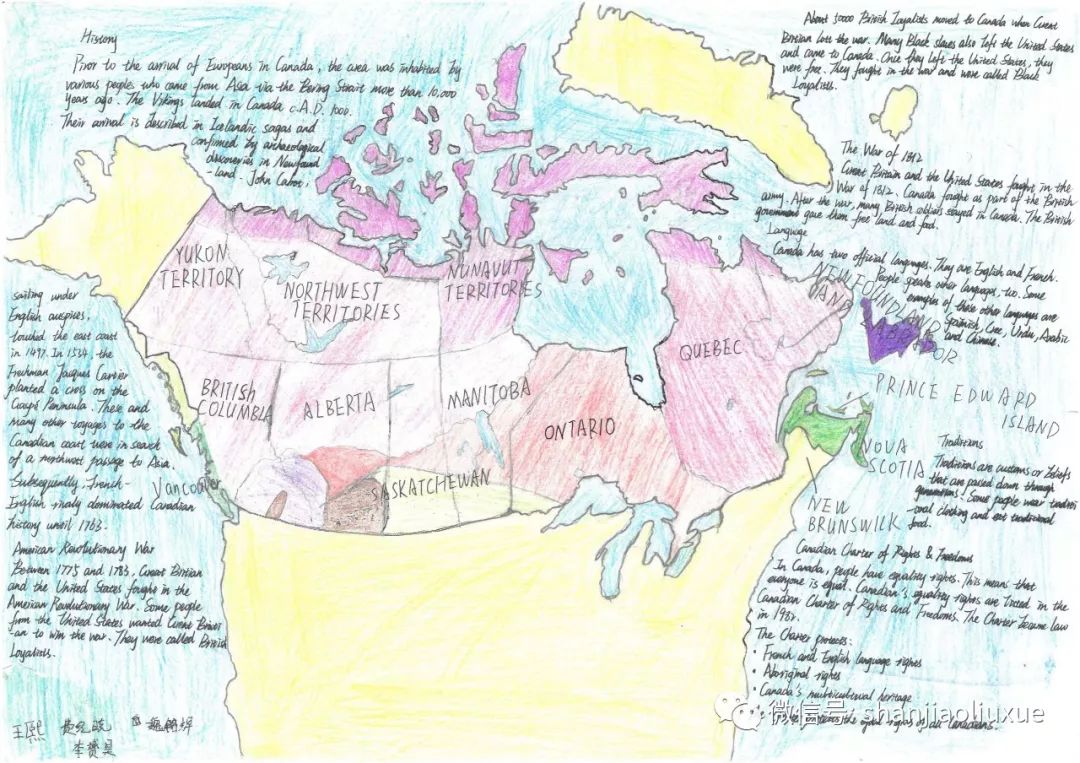 History
Prior to the arrival of Europeans in Canada, the area was inhabited by
various people who came from Asia via the Bering Strait more than 10,000
years ago. The Vikings landed in Canada c.A.D. 1000.
Their arrival is described in Icelandic sagas and
confirmed by archaeological
discoveries in Newfound
-land. John Cabot,
sailing under
English auspices,
touched the east coast
in 1497. In 1534, the
Frenchman Jacques Cartier
planted a cross on the
Gaspé Peninsula. These and
many other voyages to the
Canadian coast were in search
of a northwest passage to Asia.
Subsequently, French-
English rivalry dominated Canadian
history until 1763.
American Revolutionary War
Between 1775 and 1783, Great Britian
and the United States fought in the
American Revolutionary War. Some people
from the United States wanted Great
-an to win the war. They were called British
Loyalists.
About 50000 British Loyalists moved to Canada when Great
Britian lost the war. Many Black slaves also left the United States
and came to Canada. Once they left the United States, they
were free. They fought in the war and were called Black
Loyalists.
The War of 1812
Great Britain and the United States fought in the
War of 1812. Canada fought as part of the British
army. After the war, many British soldiers stayed in Canada. The British
government gave them free land and food.
Language
Canada has two official languages. They are English and French.
People speaks other languages, too. Some
examples of these other languages are
Spainish, Cree, Urdu, Arabic
and Chinese.
Traditions
Traditions are customs or beliefs
that are passed down through
generations. Some people wear traditi
-onal clothing and eat traditional
food.
Canadian Charter of Rights & Freedoms
In Canada, people have equality rights. This means that
everyone is equal. Canadian's equality rights are listed in the
Canadian Charter of Rights and Freedoms. The Charter became law
in 1982.
The Charter protects:
· French and English language rights
· Aboriginal rights
· Canada's multicultural heritage
the equal rights of all Canadians.
YUKON
TERRITORY
NORTHWEST
TERRITORIES
NUNAVUT
TERRITORIES
BRITISH
COLUMBIA
ALBERTA
MANITOBA
SASKATCHEWAN
ONTARIO
QUEBEC
NEWFOUNDLAND
AND
LABRADOR
PRINCE EDWARD
ISLAND
NOVA
SCOTIA
NEW
BRUNSWILK
Vancouver
王熙
李赞昊
微信号: shanjiaoliuxue